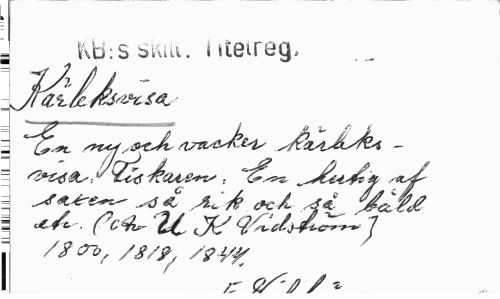 KB:s skill. Titelreg.
Kärleksvisa
En ny och vacker kärleks-
visa. Fiskaren. En hertig af
saxen så rik och så båld
etc. (ch U K Vidström)
1800, 1818, 1844.